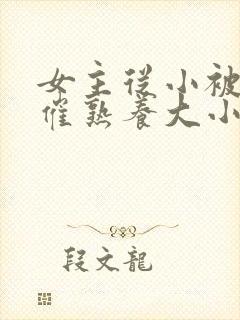 女主從小被
催熟養大小
段文龍